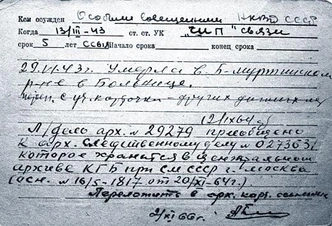 Кем осужден Особым Совещанием НКВД СССР
Когда 13/III-43 ст. ст. УК "СИП" связи
срок 5 л ссыл Начало срока конец срока
29.VI.43 г. Умерла в Б-муртинском
р-не в Больнице.
с уч. карточки других данных
Л/дело арх. № 29279 приобщено
к арх. следственному делу № 023631
которое хранится в центральном
архиве КГБ при СМ СССР г. Москва
(осн. № 16/5-1817 от 20/XI-64 г.)
Переложить в арх. карт. ссыльн